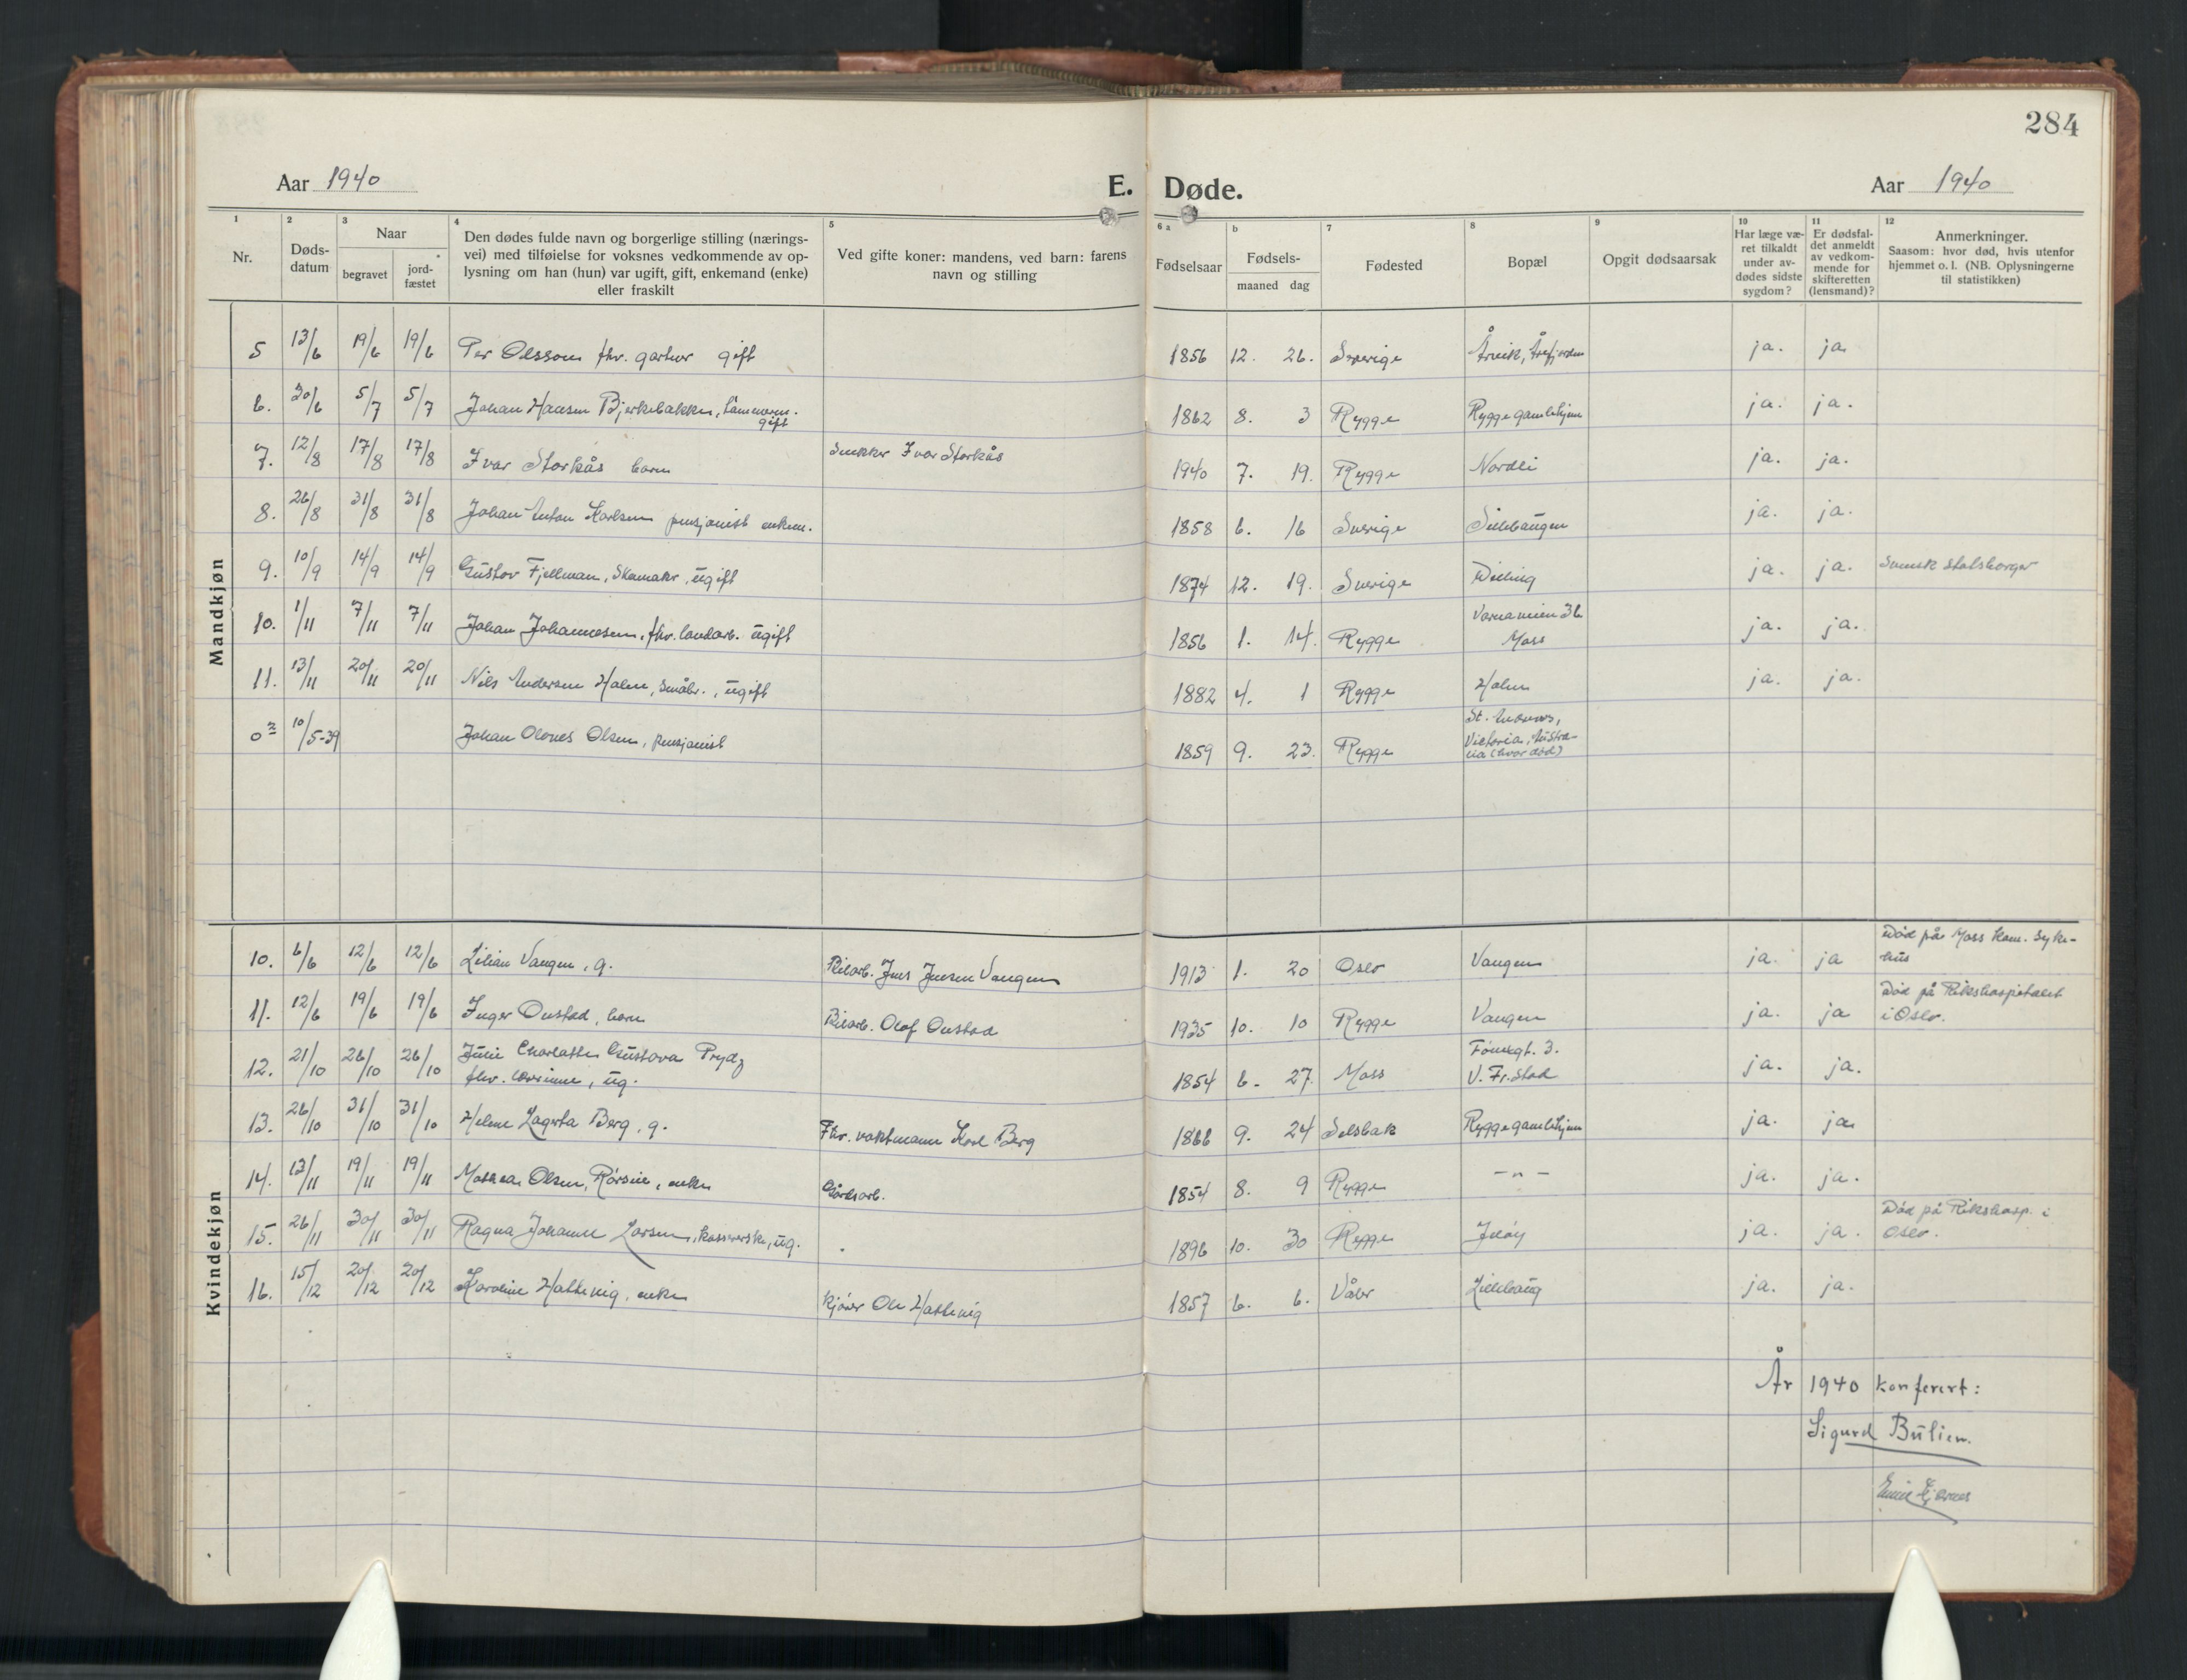 284
Aar 1940 E. Døde. Aar 1940
1 2 3 4 5 6 a b 7 8 9 10 11 12
Nr. Døds-datum Naar begravet jord-fæstet Den dødes fulde navn og borgerlige stilling (nærings-vei) med tilføielse for voksnes vedkommende av op-lysning om han (hun) var ugift, gift, enkemand (enke) eller fraskilt Ved gifte koner: mandens, ved barn: farens navn og stilling Fødselsaar Fødsels- maaned dag Fødested Bopæl Opgit dødsaarsak Har læge væ-ret tilkaldt under av-dødes sidste sygdom? Er dødsfal-det anmeldt av vedkom-mende for skifteretten (lensmand)? Anmerkninger. Saasom: hvor død, hvis utenfor hjemmet o. l. (NB. Oplysningerne til statistikken)
Mandkjøn
5 13/6 19/6 19/6 Per Olsson fhv. gartner gift 1856 12. 26. Sverige Årvik, Årefjorden ja. ja
6. 30/6 5/7 5/7 Johan Hansen Bjerkebakken, tømmerm. gift 1862 8. 3 Rygge Rygge gamlehjem ja. ja.
7. 12/8 17/8 17/8 Ivar Storkås barn Snekker Ivar Storkås 1940 7. 19. Rygge Nordli ja. ja.
8. 26/8 31/8 31/8 Johan Anton Karlsen pensjonist enkem. 1858 6. 16 Sverige Sillebaugen ja. ja.
9. 10/9 14/9 14/9 Gustav Fjellman, Skomaker, ugift 1874 12. 19. Sverige Dilling ja. ja. Svensk statsborger
10. 1/11 7/11 7/11 Johan Johannesen, fhv. landarb. ugift 1856 1. 14. Rygge Varnaveien 36 Moss ja. ja.
11. 13/11 20/11 20/11 Nils Andersen Holm, småbr., ugift 1882 4. 1 Rygge Holm ja. ja.
10/5-39 Johan Olanes Olsen, pensjonist 1859 9. 23. Rygge St. Andrews, Victoria, Austra-lia (hvor død)
Kvindekjøn
10. 6/6 12/6 12/6 Lilian Vangen, g. Bilarb. Jens Jensen Vangen 1913 1. 20 Oslo Vangen ja. ja Død på Moss kom. syke-hus
11. 12/6 19/6 19/6 Inger Onstad, barn Bilarb. Olaf Onstad 1935 10. 10 Rygge Vangen ja. ja Død på Rikshospitalet i Oslo.
12. 21/10 26/10 26/10 Julie Charlotte Gustava Prydz fhv. lærerinne, ug. 1854 6- 27. Moss Fønixgt. 3. V. Fr.stad ja. ja.
13. 26/10 31/10 31/10 Helene Lagerta Berg, g. Fhv. vaktmann Karl Berg 1866 9. 24 Selsbak Rygge gamlehjem ja. ja
14. 13/11 19/11 19/11 Mathea Olsen, Rørsvie, enke Gårdsarb. 1854 8. 9 Rygge -"- ja. ja.
15. 26/11 30/11 30/11 Ragna Johanne Larsen, kassererske, ug. 1896 10. 30 Rygge Jeløy ja. ja. Død på Rikshosp. i Oslo.
16. 15/12 20/12 20/12 Karoline Hattevig, enke Kjører Ole Hattevig 1857 6. 6. Våler Lillehaug ja. ja.
År 1940 konferert:
Sigurd Bulien.